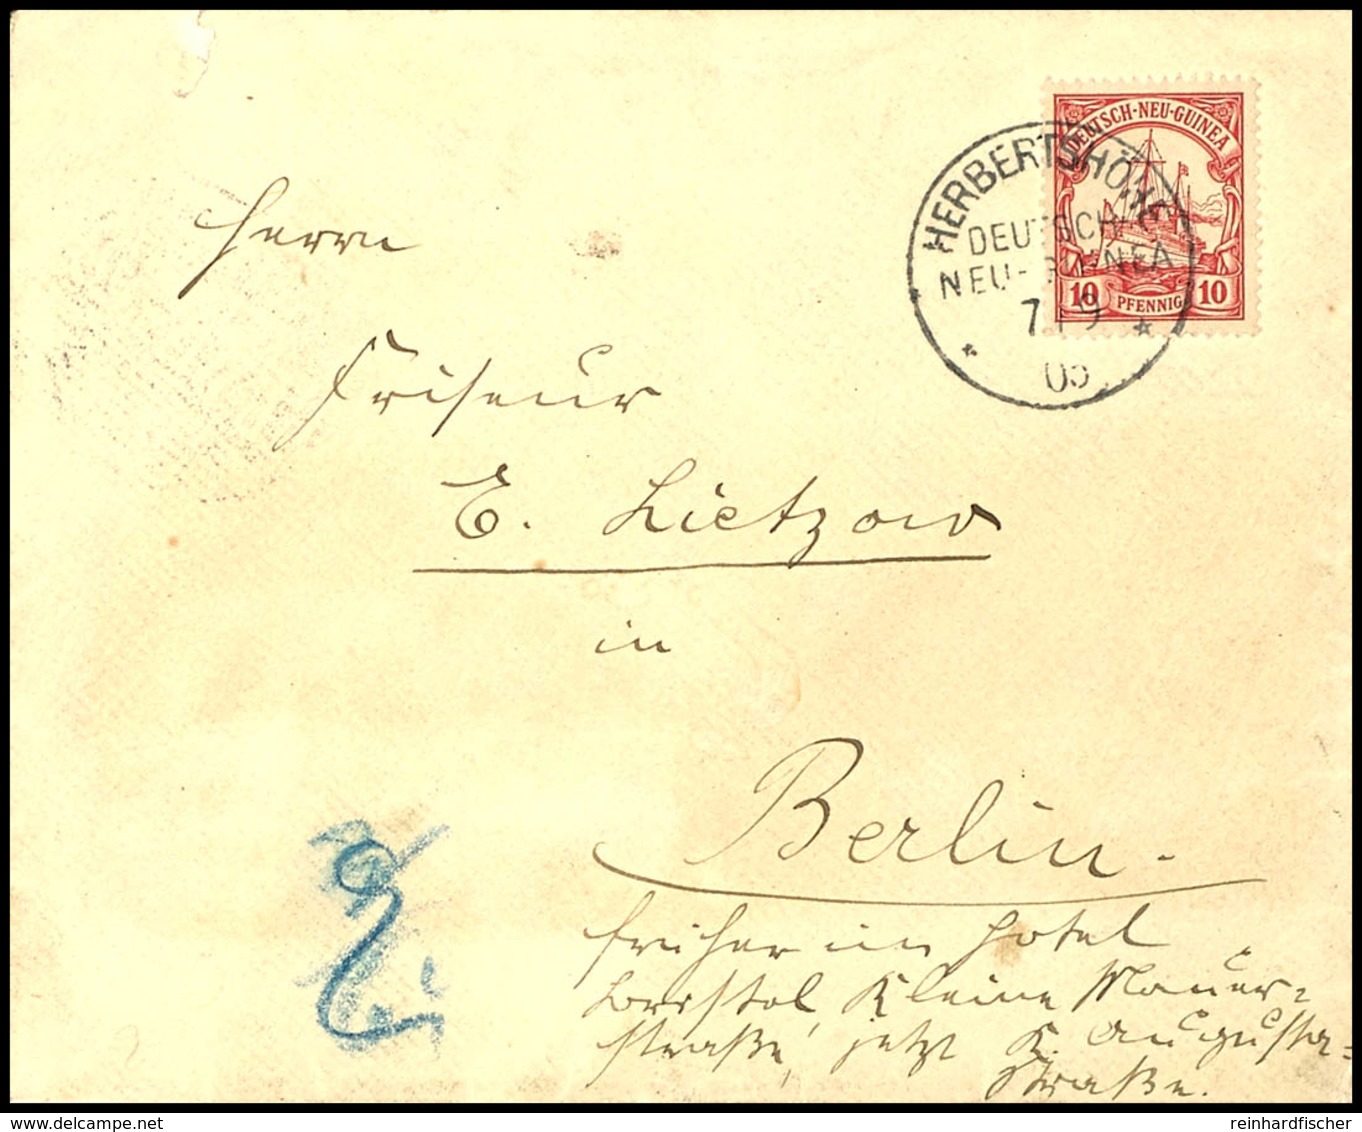 DEUTSCH-NEU-GUINEA
10 PFENNIG 10
HERBERTSHÖHE
DEUTSCH-
NEU-GUINEA
7 / 9
05
Herrn
Friseur
E. Lietzow
in
Berlin.
früher im Hotel
Kleine Mauer=
straße, jetzt K. Augusta=
Straße.
reinhardfischer